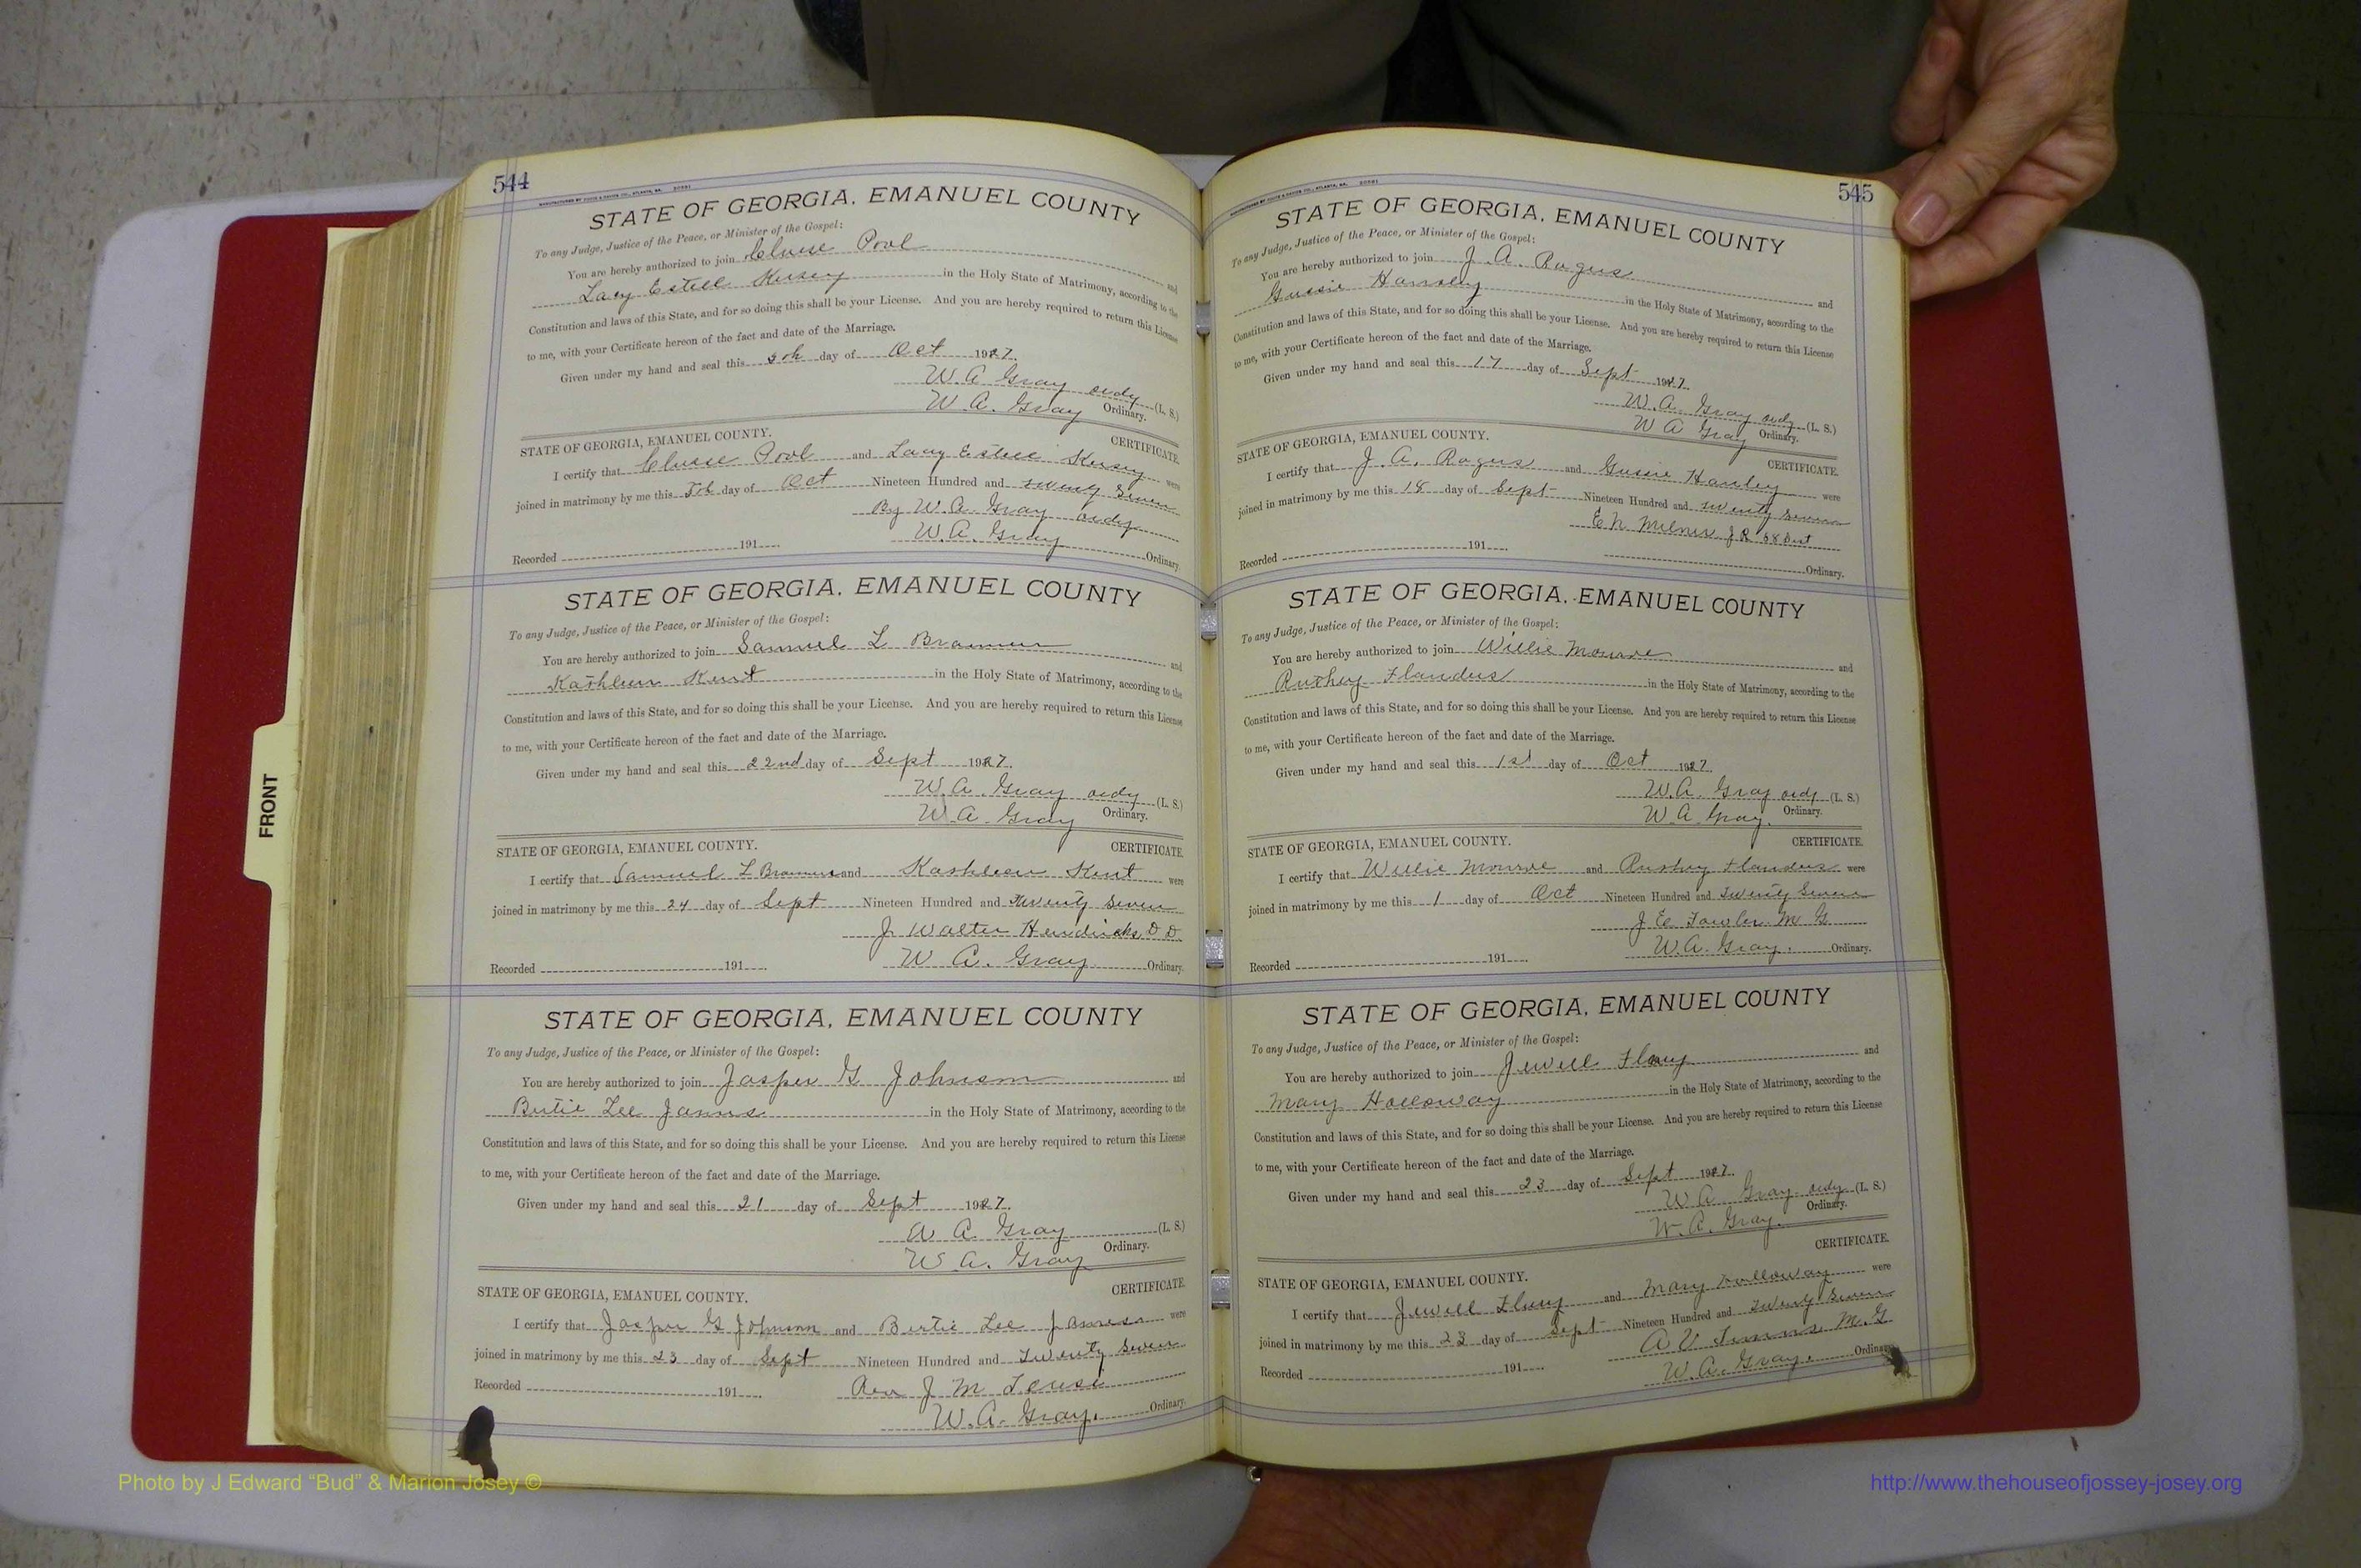 544
MANUFACTURED BY FOOTE & DAVIES CO., ATLANTA, GA.
STATE OF GEORGIA, EMANUEL COUNTY
To any Judge, Justice of the Peace, or Minister of the Gospel:
You are hereby authorized to join Pool and
Lacy Estell Kersey in the Holy State of Matrimony, according to the
Constitution and laws of this State, and for so doing this shall be your License. And you are hereby required to return this License
to me, with your Certificate hereon of the fact and date of the Marriage.
Given under my hand and seal this 5th day of Oct 1927.
W. A Gray ordy (L. S.)
W. A. Gray Ordinary.
STATE OF GEORGIA, EMANUEL COUNTY. CERTIFICATE.
I certify that Pool and Lacy Estell Kersey were
joined in matrimony by me this 5th day of Oct Nineteen Hundred and twenty Seven
By W. A. Gray ordy
Recorded 191 W. A. Gray Ordinary.
STATE OF GEORGIA, EMANUEL COUNTY
To any Judge, Justice of the Peace, or Minister of the Gospel:
You are hereby authorized to join Samuel L Brannen and
Kathleen Kent in the Holy State of Matrimony, according to the
Constitution and laws of this State, and for so doing this shall be your License. And you are hereby required to return this License
to me, with your Certificate hereon of the fact and date of the Marriage.
Given under my hand and seal this 22nd day of Sept 1927.
W. A. Gray ordy (L. S.)
W. A. Gray Ordinary.
STATE OF GEORGIA, EMANUEL COUNTY. CERTIFICATE.
I certify that Samuel L Brannen and Kathleen Kent were
joined in matrimony by me this 24 day of Sept Nineteen Hundred and Twenty Seven
J. Walter Hendricks, D. D.
Recorded 191 W A. Gray Ordinary.
STATE OF GEORGIA, EMANUEL COUNTY
To any Judge, Justice of the Peace, or Minister of the Gospel:
You are hereby authorized to join Jasper G Johnson and
Bertie Lee in the Holy State of Matrimony, according to the
Constitution and laws of this State, and for so doing this shall be your License. And you are hereby required to return this License
to me, with your Certificate hereon of the fact and date of the Marriage.
Given under my hand and seal this 21 day of Sept 1927.
W A. Gray (L. S.)
W. A. Gray Ordinary.
STATE OF GEORGIA, EMANUEL COUNTY. CERTIFICATE.
I certify that Jasper G Johnson and Bertie Lee were
joined in matrimony by me this 23 day of Sept Nineteen Hundred and Twenty Seven
Recorded 191 Rev J M
W. A. Gray. Ordinary.
545
MANUFACTURED BY FOOTE & DAVIES CO., ATLANTA, GA.
STATE OF GEORGIA, EMANUEL COUNTY
To any Judge, Justice of the Peace, or Minister of the Gospel:
You are hereby authorized to join J. A. Rogers and
Gussie in the Holy State of Matrimony, according to the
Constitution and laws of this State, and for so doing this shall be your License. And you are hereby required to return this License
to me, with your Certificate hereon of the fact and date of the Marriage.
Given under my hand and seal this 17 day of Sept 1927.
W. A. Gray ordy (L. S.)
W A Gray Ordinary.
STATE OF GEORGIA, EMANUEL COUNTY. CERTIFICATE.
I certify that J. A. Rogers and Gussie were
joined in matrimony by me this 18 day of Sept Nineteen Hundred and twenty Seven
E N Milner J P 58 Dist
Recorded 191 Ordinary.
STATE OF GEORGIA, EMANUEL COUNTY
To any Judge, Justice of the Peace, or Minister of the Gospel:
You are hereby authorized to join Willie Monroe and
Flanders in the Holy State of Matrimony, according to the
Constitution and laws of this State, and for so doing this shall be your License. And you are hereby required to return this License
to me, with your Certificate hereon of the fact and date of the Marriage.
Given under my hand and seal this 1st day of Oct 1927.
W. A. Gray ordy (L. S.)
W. A Gray. Ordinary.
STATE OF GEORGIA, EMANUEL COUNTY. CERTIFICATE.
I certify that Willie Monroe and Flanders were
joined in matrimony by me this 1 day of Oct Nineteen Hundred and Twenty Seven
J E Fowler M G.
Recorded 191 W. A. Gray. Ordinary.
STATE OF GEORGIA, EMANUEL COUNTY
To any Judge, Justice of the Peace, or Minister of the Gospel:
You are hereby authorized to join Jewell Flury and
Mary Holloway in the Holy State of Matrimony, according to the
Constitution and laws of this State, and for so doing this shall be your License. And you are hereby required to return this License
to me, with your Certificate hereon of the fact and date of the Marriage.
Given under my hand and seal this 23 day of Sept 1927.
W A Gray ordy (L. S.)
W. A. Gray. Ordinary.
STATE OF GEORGIA, EMANUEL COUNTY. CERTIFICATE.
I certify that Jewell Flury and Mary Holloway were
joined in matrimony by me this 23 day of Sept Nineteen Hundred and Twenty Seven
A. V M. G
Recorded 191 W. A. Gray. Ordinary.
FRONT
Photo by J Edward “Bud” & Marion Josey ©
http://www.thehouseofjossey-josey.org